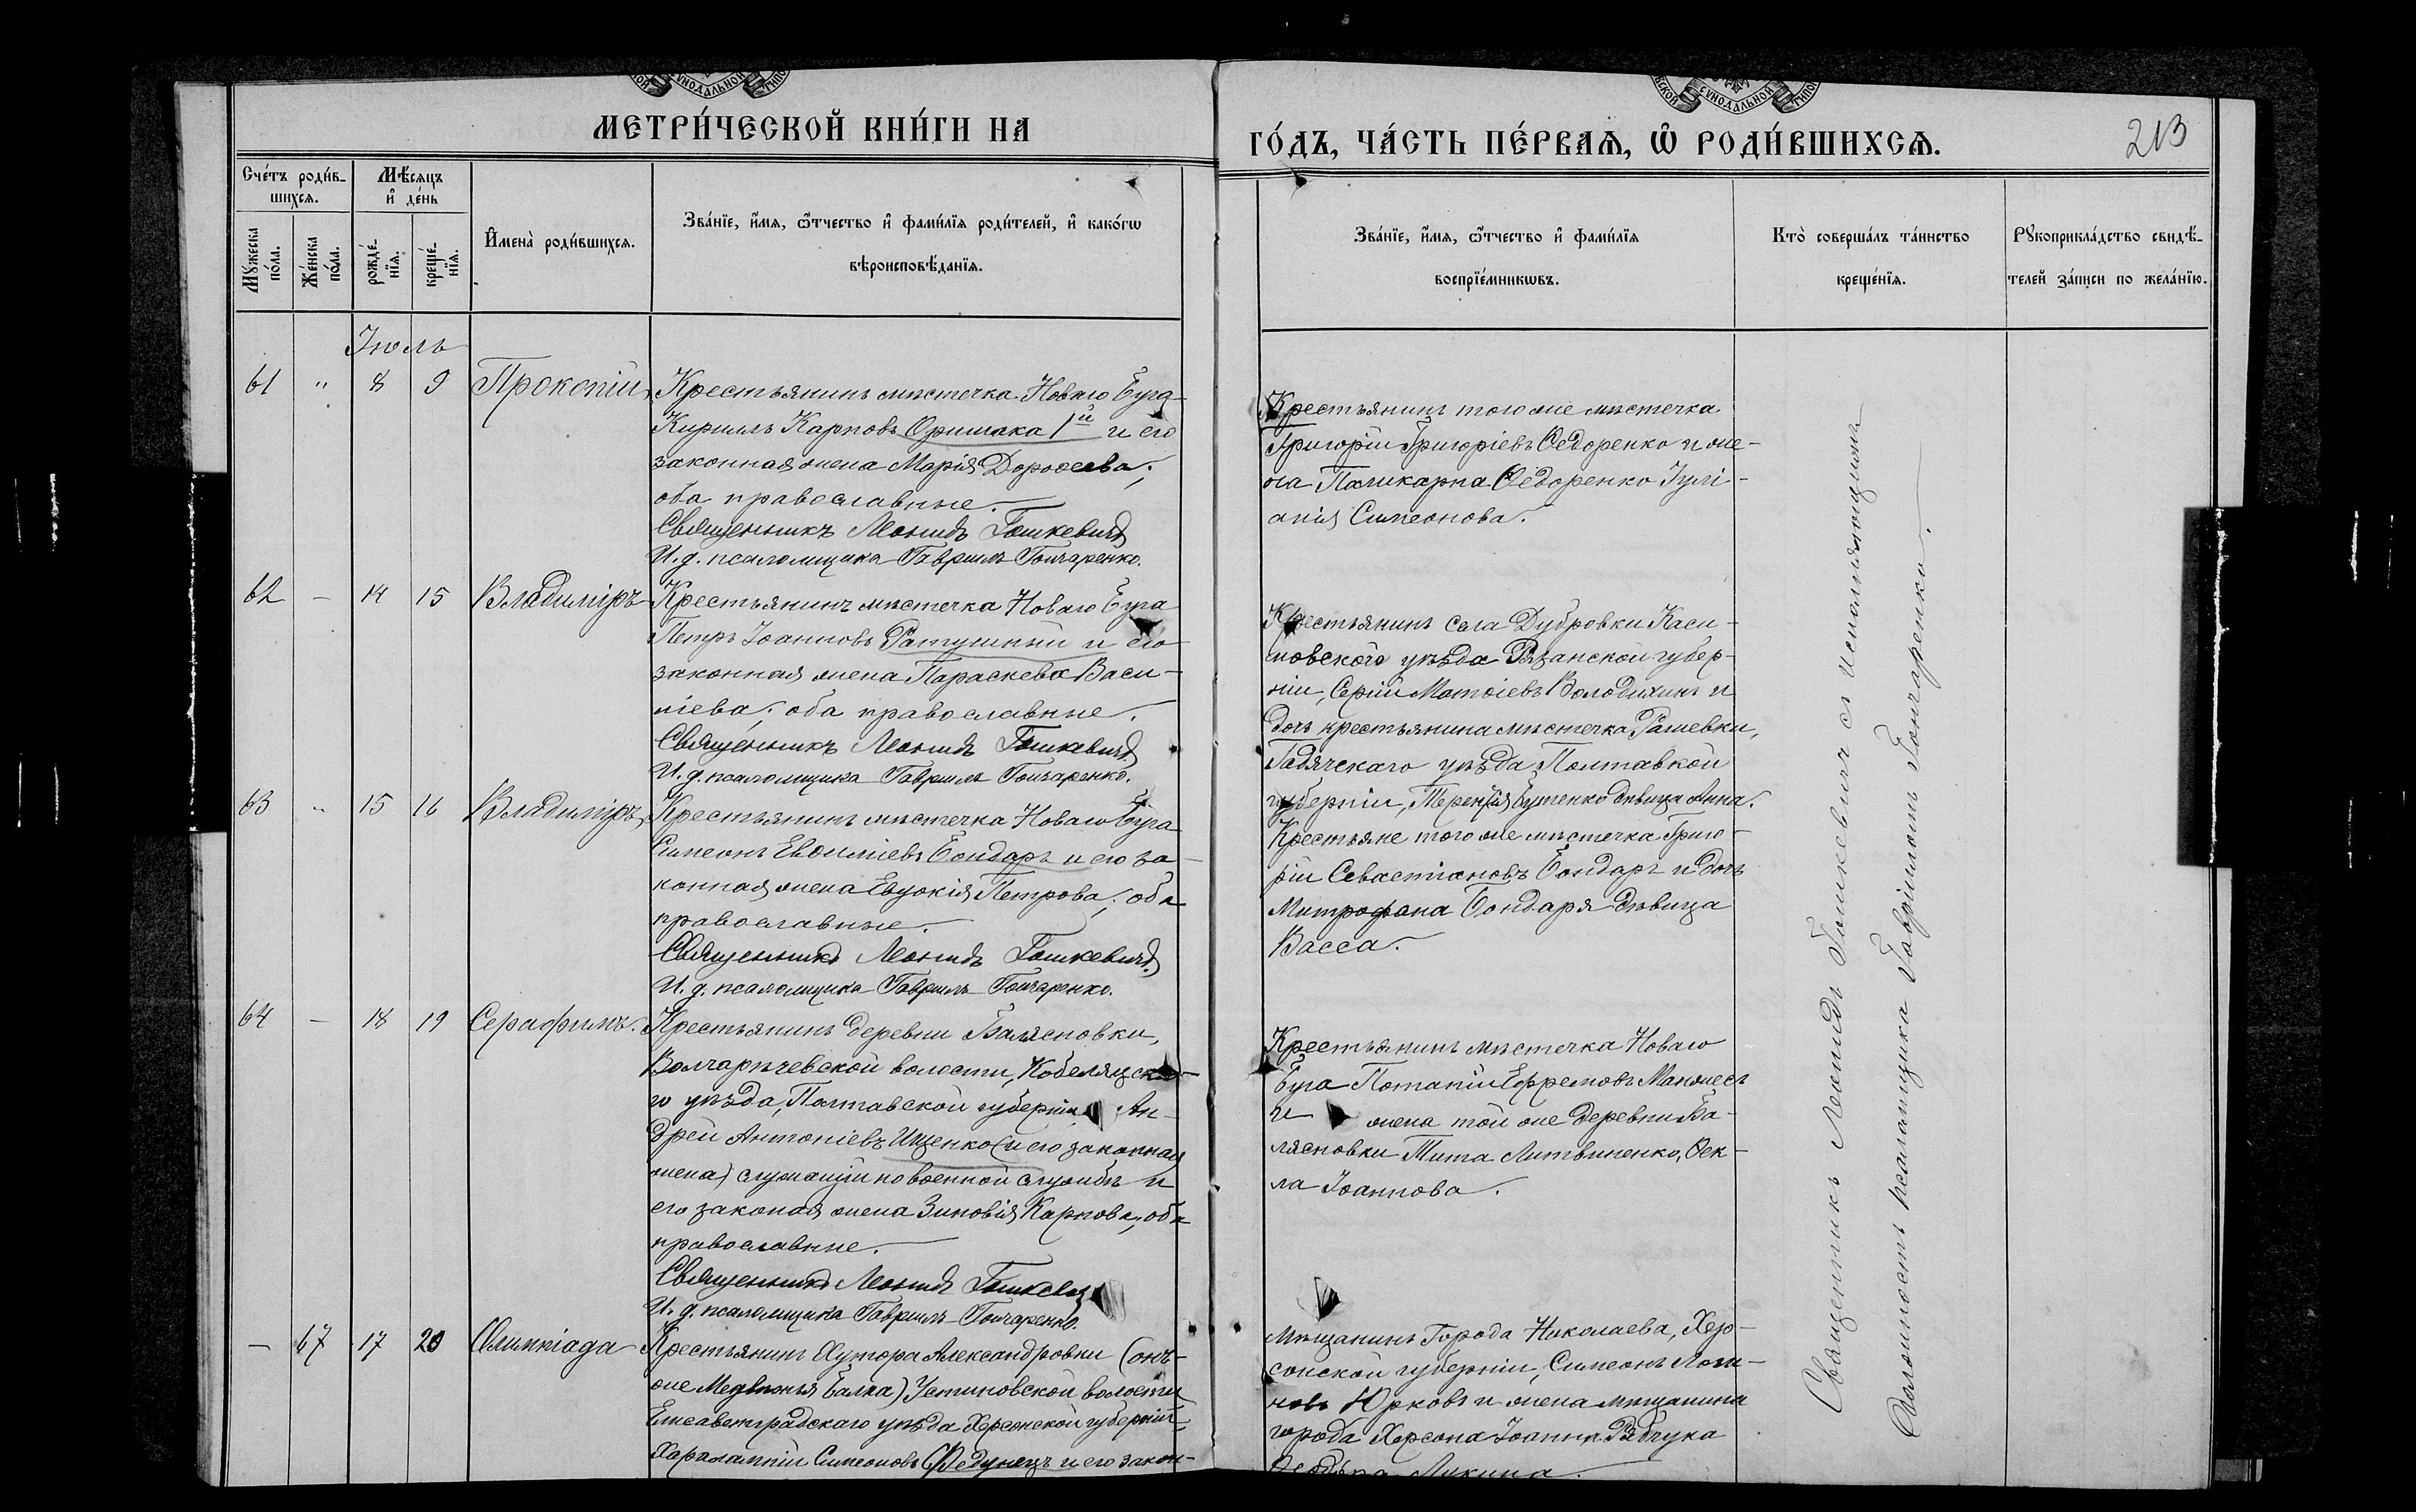 МЕТРИ́ЧЕСКОЙ КНИ́ГИ НА
ГО́ДЪ, ЧА́СТЬ ПЕ́РВАѦ, Ѡ҆ РОДИ́ВШИХСѦ.
213
Сче́тъ роди́в-
шихсѧ.
Мѣ́сяцъ
и҆ де́нь
Мꙋ́жеска по́ла.
Же́нска по́ла.
рожде́-
нїѧ.
креще́-
нїѧ.
И҆мена̀ роди́вшихсѧ.
Зва́нїе, и҆́мѧ, ѻ҆́тчество и҆ фами́лїѧ роди́телей, и҆ како́гѡ
вѣроисповѣ́данїѧ.
Зва́нїе, и҆́мѧ, ѻ҆́тчество и҆ фами́лїѧ
воспрїе́мникѡвъ.
Кто̀ соверша́лъ та́инство
креще́нїѧ.
Рꙋкоприкла́дство свидѣ́-
телей за́писи по жела́нїю.
Іюль
61 " 8 9 Прокопій
Крестьянинъ мѣстечка Новаго Буга
Кириллъ Карповъ Оришака 1й и его
законная жена Марія Дороѳеева;
оба православные.
Священникъ Леонидъ Гошкевичъ
И. д. псаломщика Гавриилъ Гончаренко.
Крестьянинъ того же мѣстечка
Григорій Григоріевъ Ѳедоренко и же-
на Поликарпа Ѳедоренко Іулі-
анія Симеонова.
62 — 14 15 Владиміръ
Крестьянинъ мѣстечка Новаго Буга
Петръ Іоанновъ Ратушный и его
законная жена Параскева Васи-
ліева; оба православные.
Священникъ Леонидъ Гошкевичъ
И. д. псаломщика Гавриилъ Гончаренко.
Крестьянинъ села Дубровки Каси-
мовского уѣзда Рязанской губер-
ніи, Сергій Матѳіевъ Володихинъ и
дочь крестьянина мѣстечка Рашевки,
Гадячскаго уѣзда Полтавкой
губерніи, Терентія Бутенко дѣвица Анна.
63 " 15 16 Владиміръ
Крестьянинъ мѣстечка Новаго Буга
Симеонъ Евѳиміевъ Бондарь и его за-
конная жена Евдокія Петрова; оба
православные.
Священникъ Леонидъ Гошкевичъ
И. д. псаломщика Гавриилъ Гончаренко.
Крестьяне того же мѣстечка Григо-
рій Севастіановъ Бондарь и дочь
Митрофана Бондаря дѣвица
Васса.
64 — 18 19 Серафимъ.
Крестьянинъ деревни Балясновки,
волости, Кобеляцска-
го уѣзда, Полтавской губерніи Ан-
дрей Антоніевъ Ищенко (и его законная
жена) служащій по военной службѣ и
его законая жена Зиновія Карпова, оба
православные.
Священникъ Леонидъ Гошкевич
И. д. псаломщика Гавриилъ Гончаренко.
Крестьянинъ мѣстечка Новаго
Буга Потапій Ефремовъ
и жена той же деревни Ба-
лясновки Тита Литвиненко, Ѳек-
ла Іоаннова.
— 67 17 20 Олимпіада
Крестьянинъ Хутора Александровки (онъ-
же Медвежья балка) Устиновской волости
Елисаветградскаго уѣзда Херсонской губерніи,
Харалампій Симеоновъ Федунецъ и его закон-
Мѣщанинъ Города Николаева, Хер-
сонской губерніи, Симеонъ Логи-
новъ Юрковъ и жена мѣщанина
города Херсона Іоанна Рябчука
Лукина.
Священникъ Леонидъ Гошкевичъ съ исполняющимъ
должность псаломщика Гавріиломъ Гончаренко.